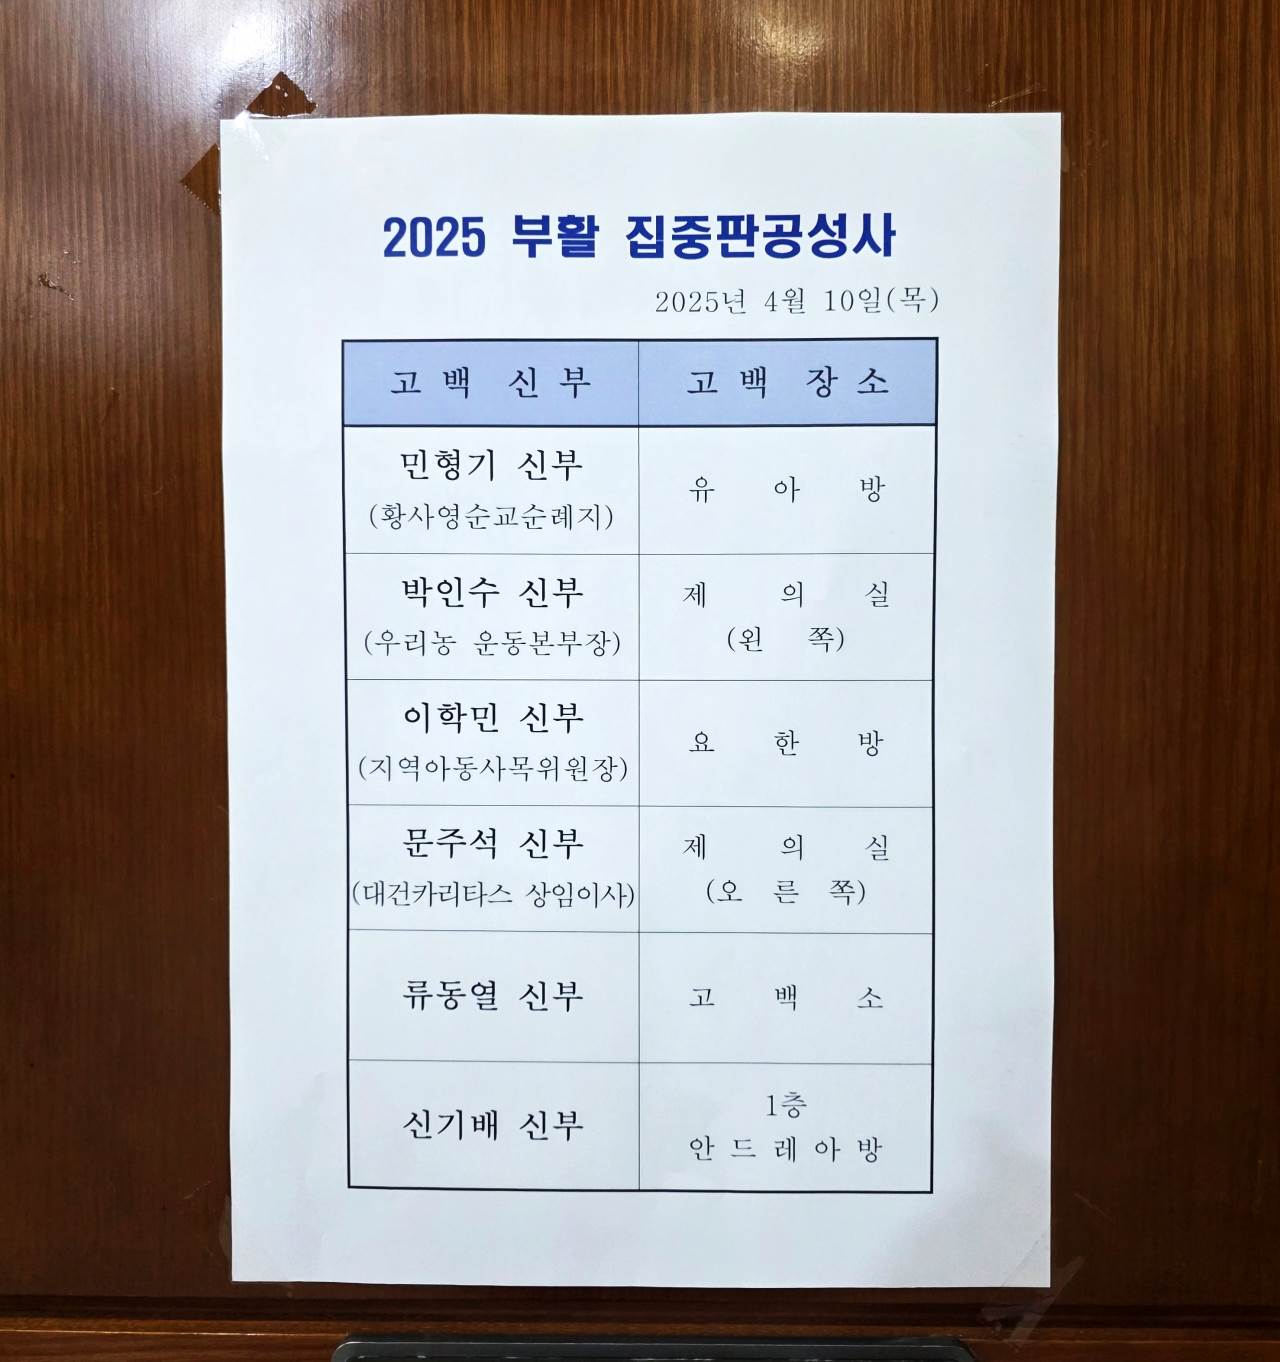 2025 부활 집중판공성사
2025년 4월 10일(목)
고백 신부 고백 장소
민형기 신부
(황사영순교순례지)
유아방
박인수 신부
(우리농 운동본부장)
제의실
(왼쪽)
이학민 신부
(지역아동사목위원장)
요한방
문주석 신부
(대건카리타스 상임이사)
제의실
(오른쪽)
류동열 신부
고백소
신기배 신부
1층
안드레아방